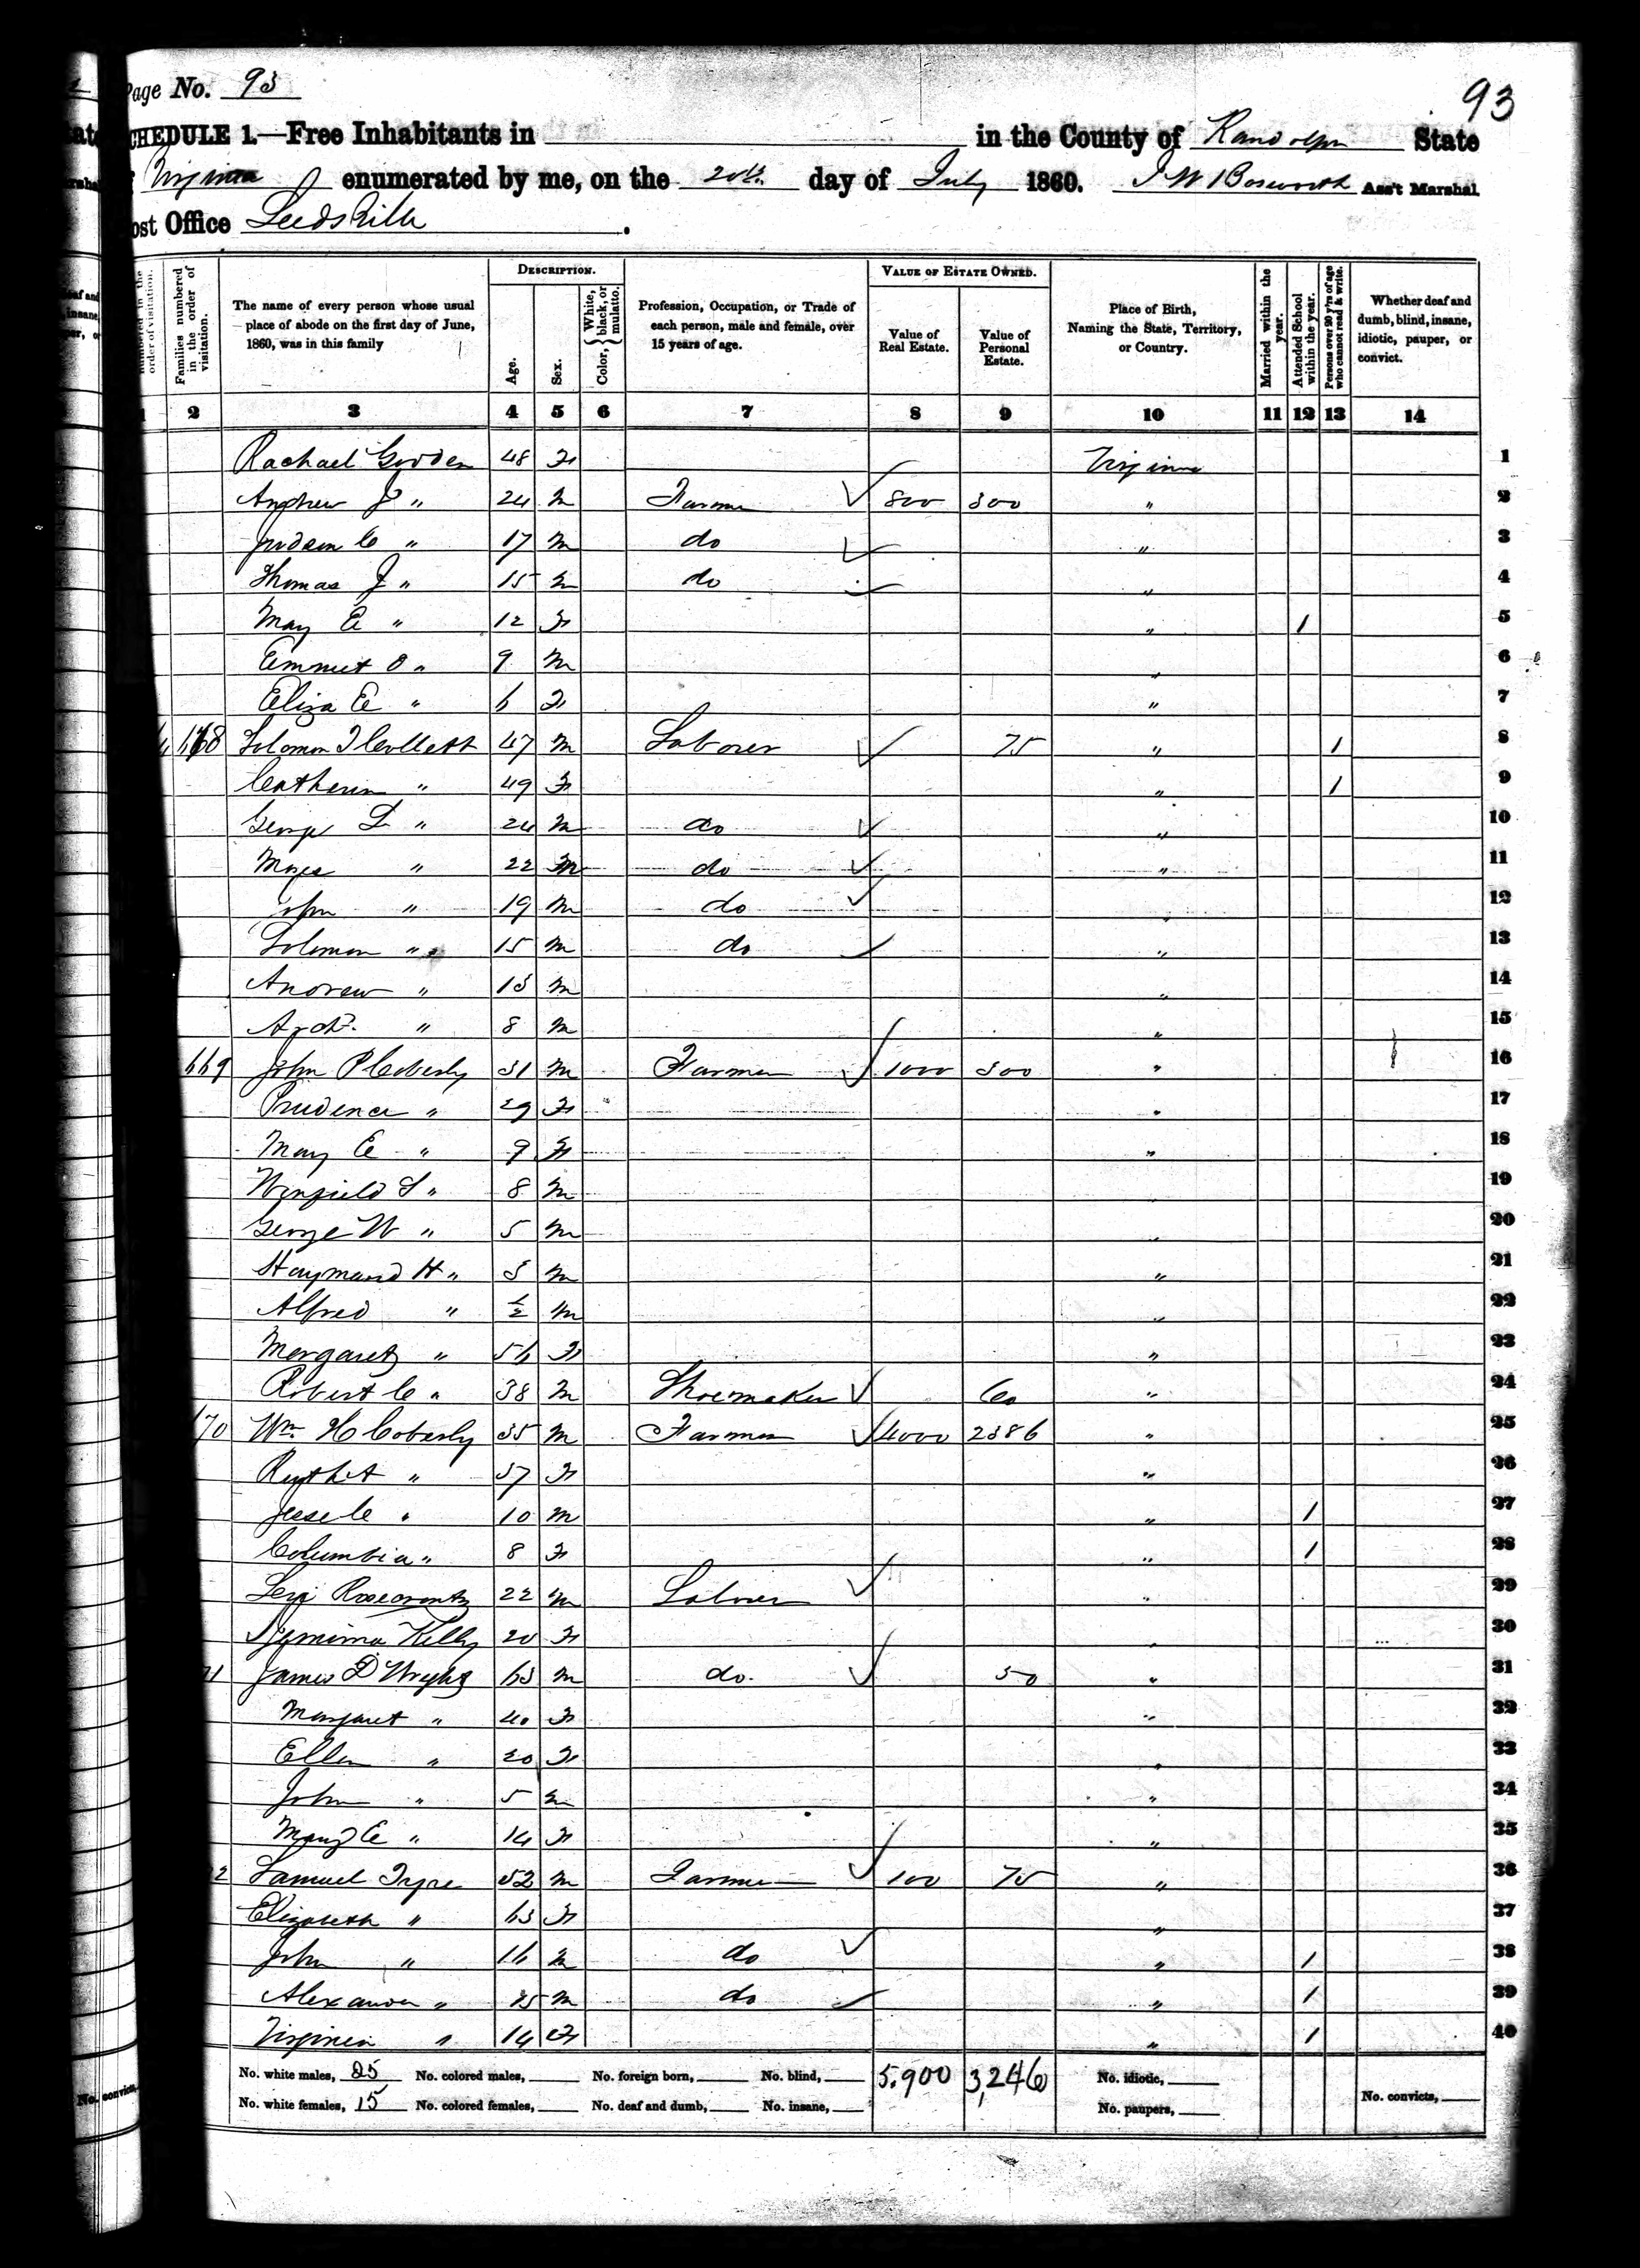 Page No. 93
93
SCHEDULE 1.—Free Inhabitants in in the County of Randolph State
of Virginia enumerated by me, on the 20th day of July 1860. J W Bosworth Ass't Marshal
Post Office Leedsville.
DESCRIPTION. VALUE OF ESTATE OWNED.
Families numbered in the order of visitation.
The name of every person whose usual place of abode on the first day of June, 1860, was in this family
Age. Sex. Color, White, black, or mulatto.
Profession, Occupation, or Trade of each person, male and female, over 15 years of age.
Value of Real Estate. Value of Personal Estate.
Place of Birth, Naming the State, Territory, or Country.
Married within the year. Attended School within the year. Persons over 20 y'rs of age who cannot read & write.
Whether deaf and dumb, blind, insane, idiotic, pauper, or convict.
1 2 3 4 5 6 7 8 9 10 11 12 13 14
Rachael Godden 48 F Virginia 1
Andrew J " 24 M Farmer 800 300 " 2
Judson C " 17 M do " 3
Thomas J " 15 M do " 4
Mary E " 12 F " 1 5
Emmet O " 9 M " 6
Eliza E " 6 F " 7
668 Solomon T Collett 47 M Laborer 75 " 1 8
Catherin " 49 F " 1 9
George L " 24 M do " 10
Moses " 22 M do " 11
John " 19 M do " 12
Solomon " 15 M do " 13
Andrew " 13 M " 14
Archd. " 8 M " 15
669 John P Coberly 31 M Farmer 1000 300 " 16
Prudence " 29 F " 17
Mary E " 9 F " 18
Winfield S " 8 M " 19
George W " 5 M " 20
Haymand H " 3 M " 21
Alfred " ½ M " 22
Margaret " 56 F " 23
Robert C " 38 M Shoemaker 60 " 24
70 Wm. H Coberly 35 M Farmer 4000 2386 " 25
Ruth A " 37 F " 26
Jesse C " 10 M " 1 27
Columbia " 8 F " 1 28
Levi 22 M Laborer " 29
Jemima Kelly 20 F " 30
71 James D Wright 63 M do. 50 " 31
Margaret " 40 F " 32
Ellen " 20 F " 33
John " 5 M " 34
Mary E " 14 F " 35
2 Samuel 52 M Farmer 100 75 " 36
Elizabeth " 63 F " 37
John " 16 M do " 1 38
Alexander " 15 M do " 1 39
Virginia " 14 F " 1 40
No. white males, 25 No. colored males, No. foreign born, No. blind, 5,900 3,246 No. idiotic,
No. white females, 15 No. colored females, No. deaf and dumb, No. insane, No. paupers, No. convicts,